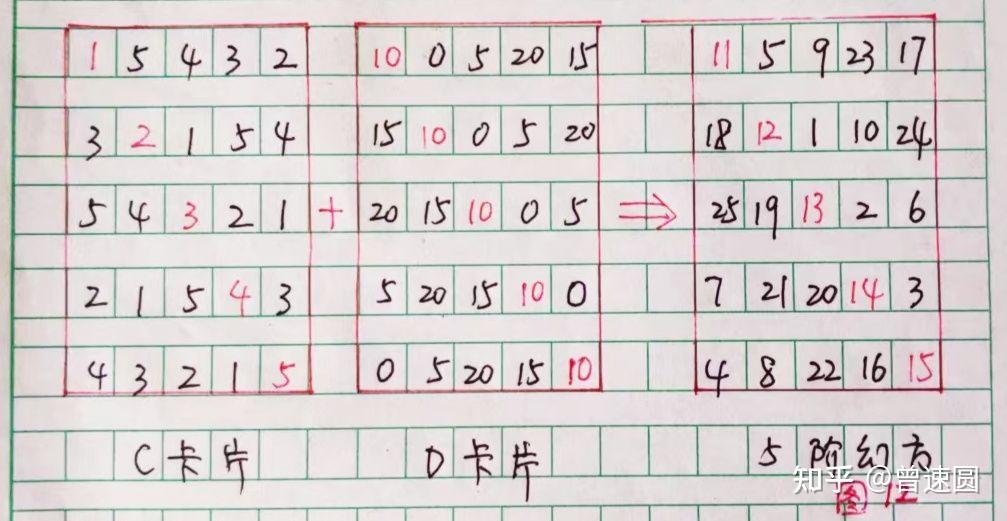 1 5 4 3 2 10 0 5 20 15 11 5 9 23 17
3 2 1 5 4 15 10 0 5 20 18 12 1 10 24
5 4 3 2 1 + 20 15 10 0 5 ⇒ 25 19 13 2 6
2 1 5 4 3 5 20 15 10 0 7 21 20 14 3
4 3 2 1 5 0 5 20 15 10 4 8 22 16 15
C卡片 D卡片 5阶幻方
知乎 @曾速圆
图12